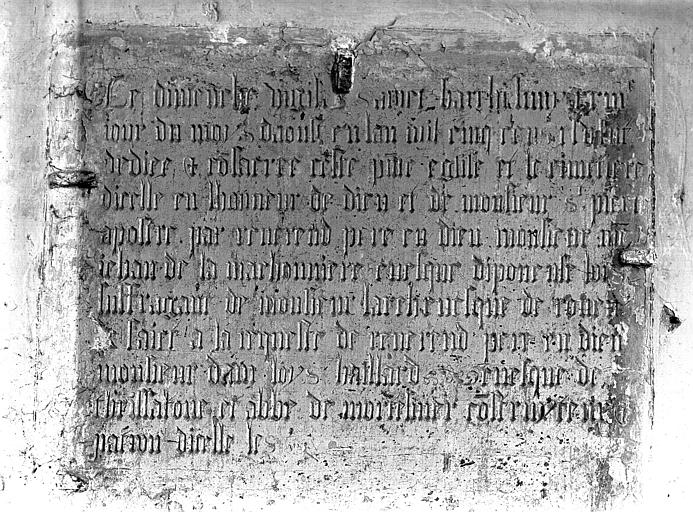 Le dimêche vigile sainct barthelemy
iour du mois daoust en lan mil cinq cens
dediee & cõsacree ceste pñte eglise et le cimetiere
dicelle en lhonneur de dieu et de monsieur s pierre
apostre par reuerend pere en dieu monsieur
iehan de la machonniere euesque diponense lor
suffragant de monsieur larcheuesque de rouen
& faict a la requeste de reuerend pere en dieu
monsieur dam loys haillard euesque de
thessalone et abbe de mortemer cõseruateur
patron dicelle